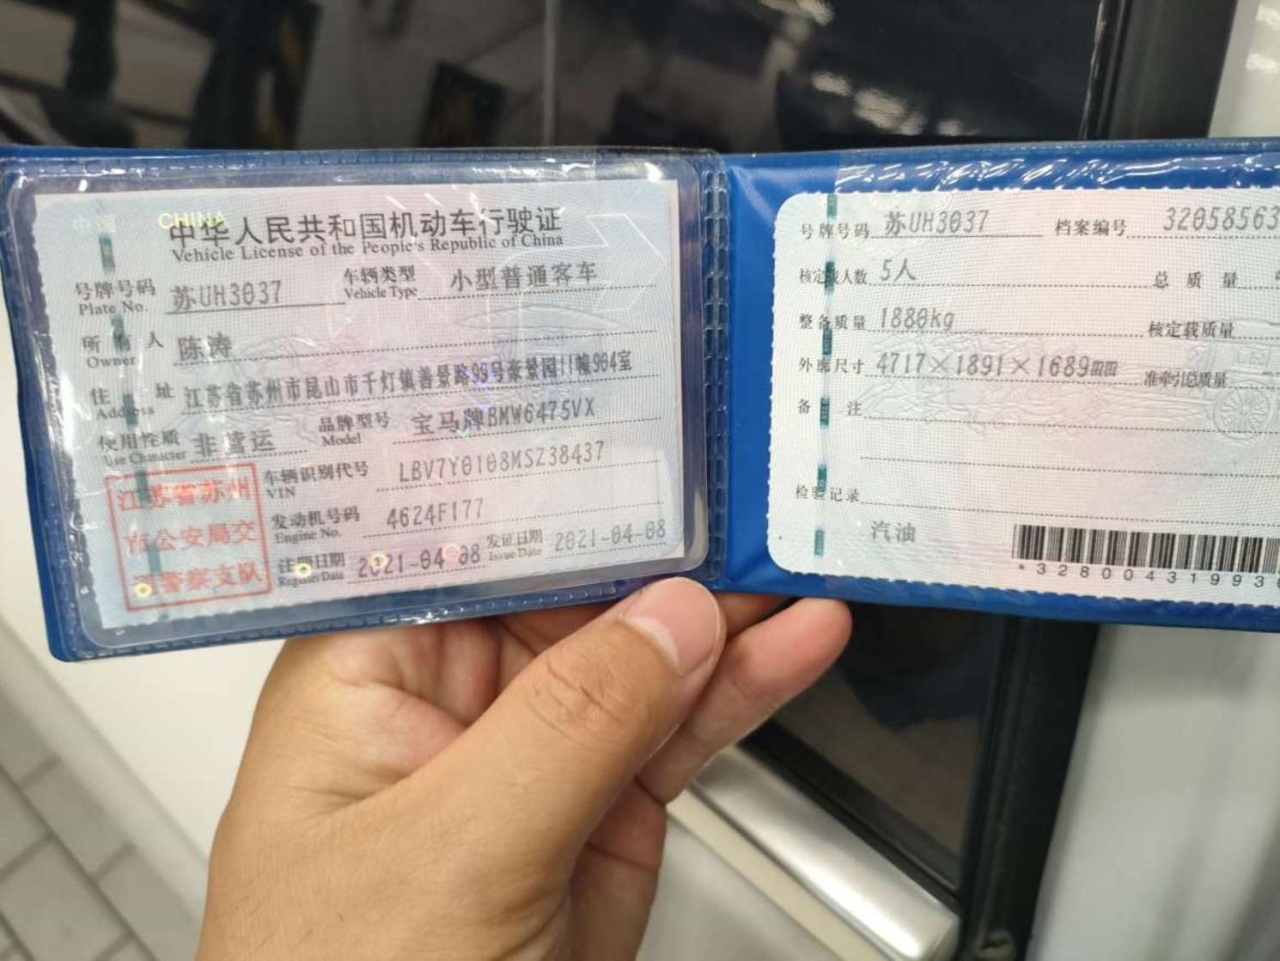 中国 CHINA
中华人民共和国机动车行驶证
Vehicle License of the People's Republic of China
号牌号码 苏UH3037 车辆类型 小型普通客车
Plate No. Vehicle Type
所有人 陈涛
Owner
住址 江苏省苏州市昆山市千灯镇善景路99号豪景园11幢904室
Address
使用性质 非营运 品牌型号 宝马牌BMW6475VX
Use Character Model
江苏省苏州
市公安局交
通警察支队
车辆识别代号 LBV7Y0108MSZ38437
VIN
发动机号码 4624F177
Engine No.
注册日期 2021-04-08 发证日期 2021-04-08
Register Date Issue Date
号牌号码 苏UH3037 档案编号 32058563
核定载人数 5人 总质量
整备质量 1880kg 核定载质量
外廓尺寸 4717×1891×1689mm 准牵引总质量
备注
检验记录
汽油
*32800431993